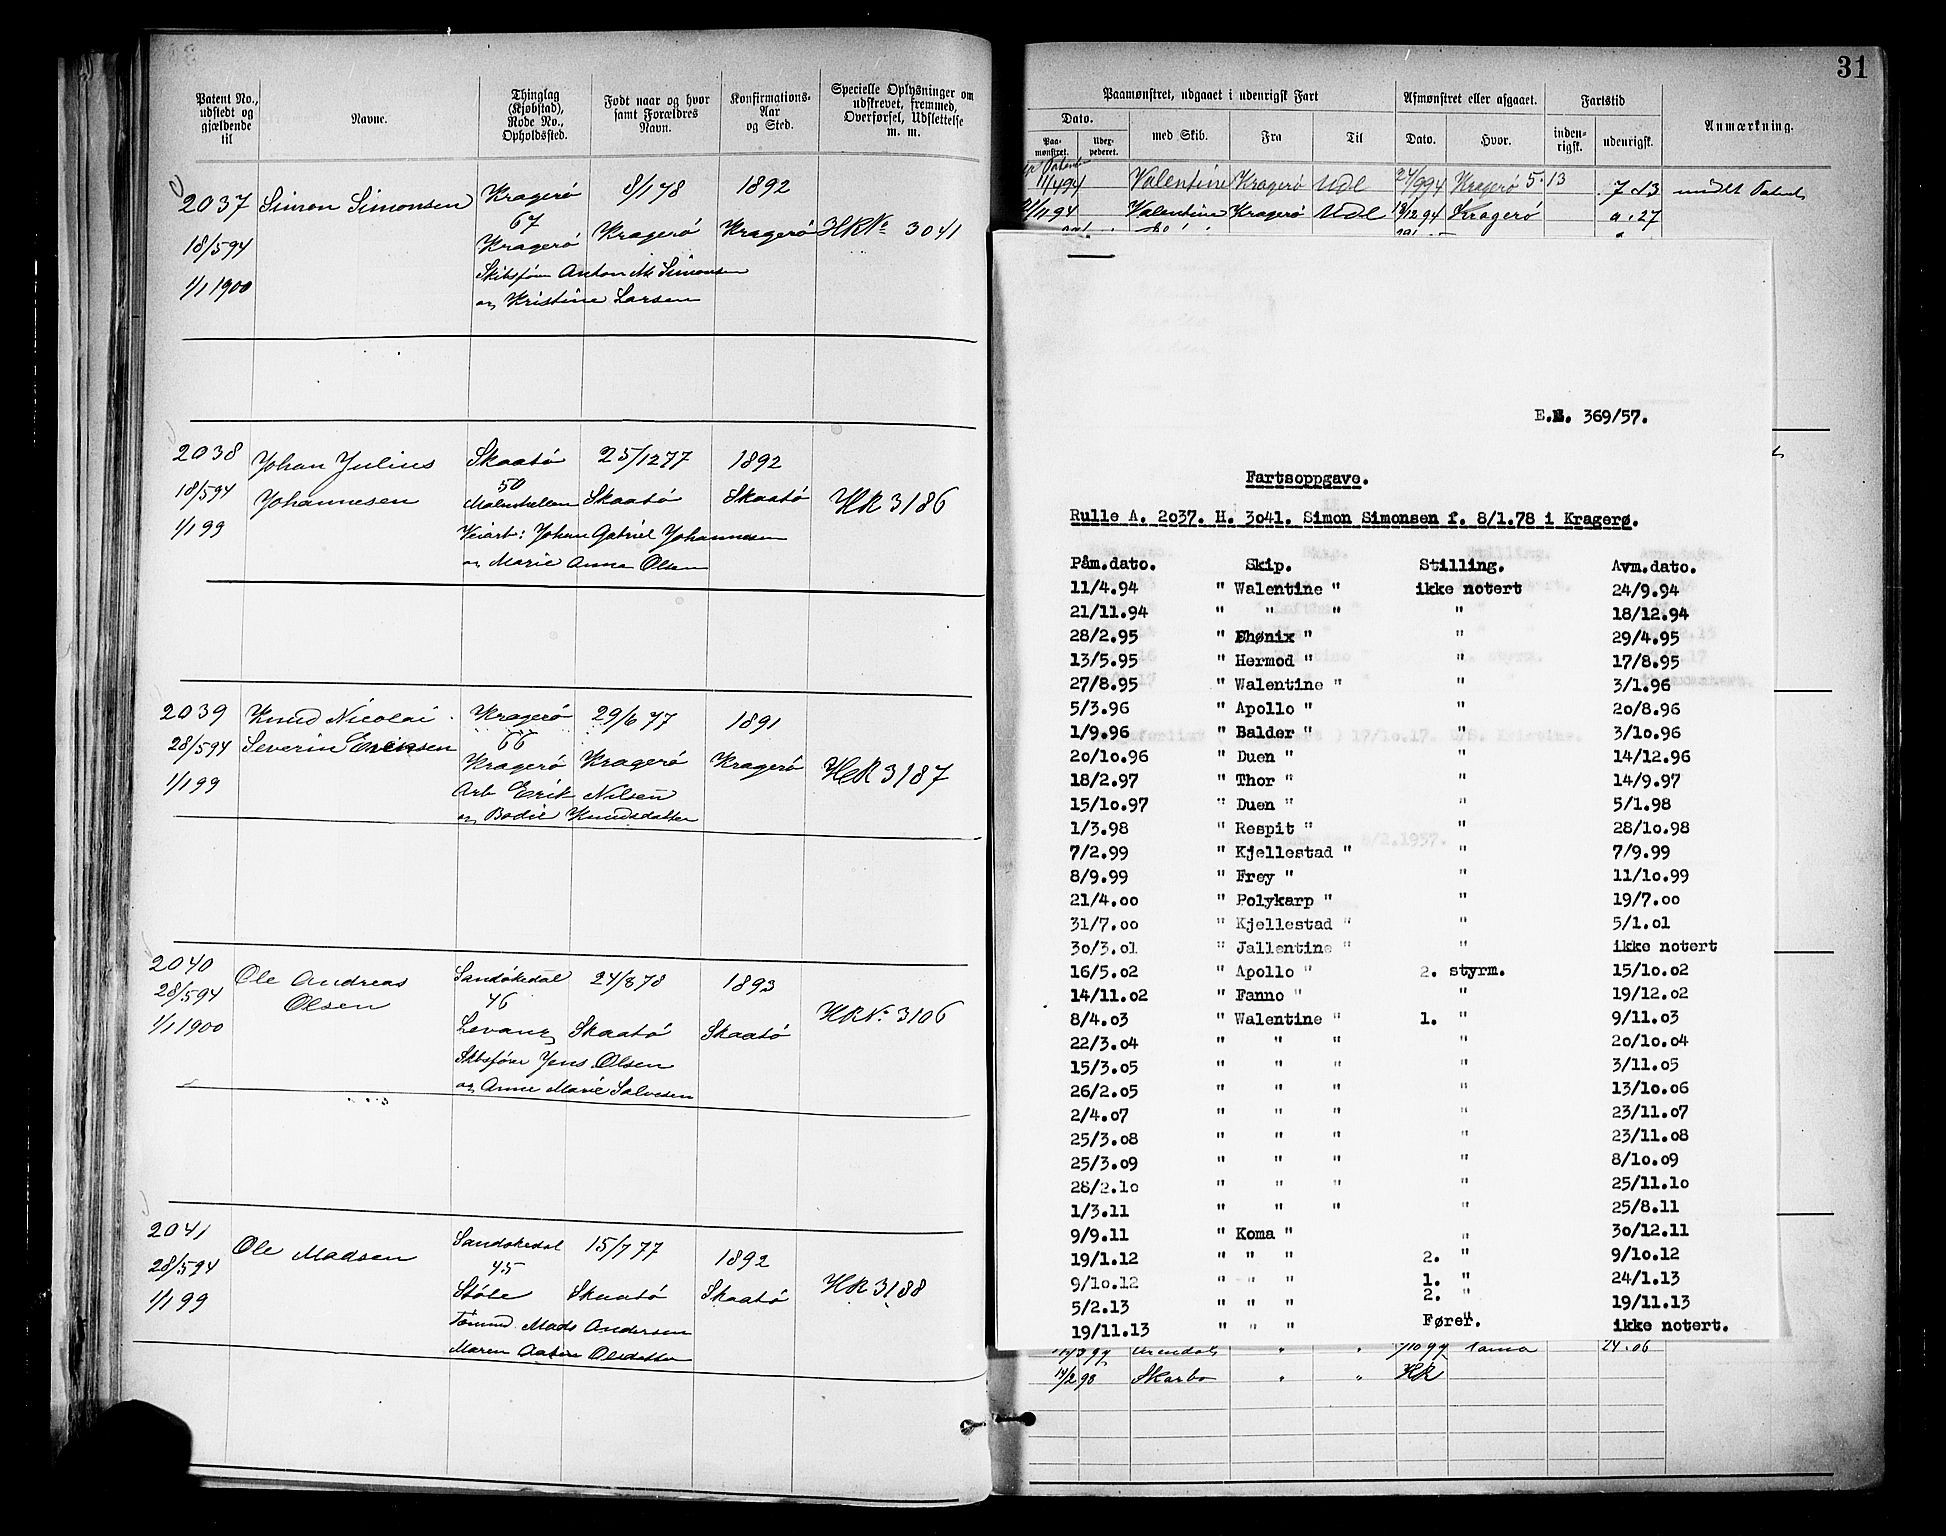 Patent No., udstedt og gjældende til
Navne.
Thinglag (Kjøbstad), Rode No., Opholdssted.
Født naar og hvor samt Forældres Navn.
Konfirmations-Aar og Sted.
Specielle Oplysninger om udskrevet, fremmed, Overførsel, Udslettelse m. m.
2037 Simon Simonsen Kragerö 8/1 78 1892
18/5 94 67
Kragerö Kragerö Kragerö HR No 3041
1/1 1900 Skibsfører Anton M. Simonsen
og Kristine Larsen
2038 Johan Julius Skaatö 25/12 77 1892
18/5 94 Johannesen 50
Skaatö Skaatö HR 3186
1/1 99 Veiarb: Johan Gabriel Johannesen
og Marie Anna Olsen
2039 Knud Nicolai Kragerö 29/6 77 1891
28/5 94 Severin Eriksen 66
1/1 99 Kragerö Kragerö Kragerö HR 3187
Arb Erik Nilsen
og Bodil Knudsdatter
2040 Ole Andreas Sandökedal 24/8 78 1893
28/5 94 Olsen 46
1/1 1900 Levang Skaatö Skaatö HR No. 3106
Skibsfører Jens Olsen
og Anne Marie Salvesen
2041 Ole Madsen Sandökedal 15/7 77 1892
28/5 94 45
1/1 99 Stöle Skaatö Skaatö HR 3188
Tömmd. Mads Andersen
Maren Olsdatter
31
Paamønstret, udgaaet i udenrigsk Fart
Afmønstret eller afgaaet.
Fartstid
Anmærkning.
Dato.
Paa-mønstret.
Udex-pederet.
med Skib.
Fra
Til
Dato.
Hvor.
inden-rigsk.
udenrigsk.
11/4 94 Valentine Kragerö Udl 24/9 94 Kragerö 5.13 7.13
21/11 94 Valentine Kragerö Udl 18/12 94 Kragerö 0.27
E.E. 369/57.
Fartsoppgave.
Rulle A. 2037. H. 3041. Simon Simonsen f. 8/1.78 i Kragerø.
Påm.dato. Skip. Stilling. Avm.dato.
11/4.94 " Walentine " ikke notert 24/9.94
21/11.94 " " " " 18/12.94
28/2.95 " Phønix " " 29/4.95
13/5.95 " Hermod " " 17/8.95
27/8.95 " Walentine " " 3/1.96
5/3.96 " Apollo " " 20/8.96
1/9.96 " Balder " " 3/10.96
20/10.96 " Duen " " 14/12.96
18/2.97 " Thor " " 14/9.97
15/10.97 " Duen " " 5/1.98
1/3.98 " Respit " " 28/10.98
7/2.99 " Kjellestad " " 7/9.99
8/9.99 " Frey " " 11/10.99
21/4.00 " Polykarp " " 19/7.00
31/7.00 " Kjellestad " " 5/1.01
30/3.01 " Jallentine " " ikke notert
16/5.02 " Apollo " 2. styrm. 15/10.02
14/11.02 " Fanno " " 19/12.02
8/4.03 " Walentine " 1. " 9/11.03
22/3.04 " " " " 20/10.04
15/3.05 " " " " 3/11.05
26/2.05 " " " " 13/10.06
2/4.07 " " " " 23/11.07
25/3.08 " " " " 23/11.08
25/3.09 " " " " 8/10.09
28/2.10 " " " " 25/11.10
1/3.11 " " " " 25/8.11
9/9.11 " Koma " " 30/12.11
19/1.12 " " " 2. " 9/10.12
9/10.12 " " " 1. " 24/1.13
5/2.13 " " " 2. " 19/11.13
19/11.13 " " " Fører. ikke notert.
Arendals " " 24.06
14/2 98 Skarbo " " HR